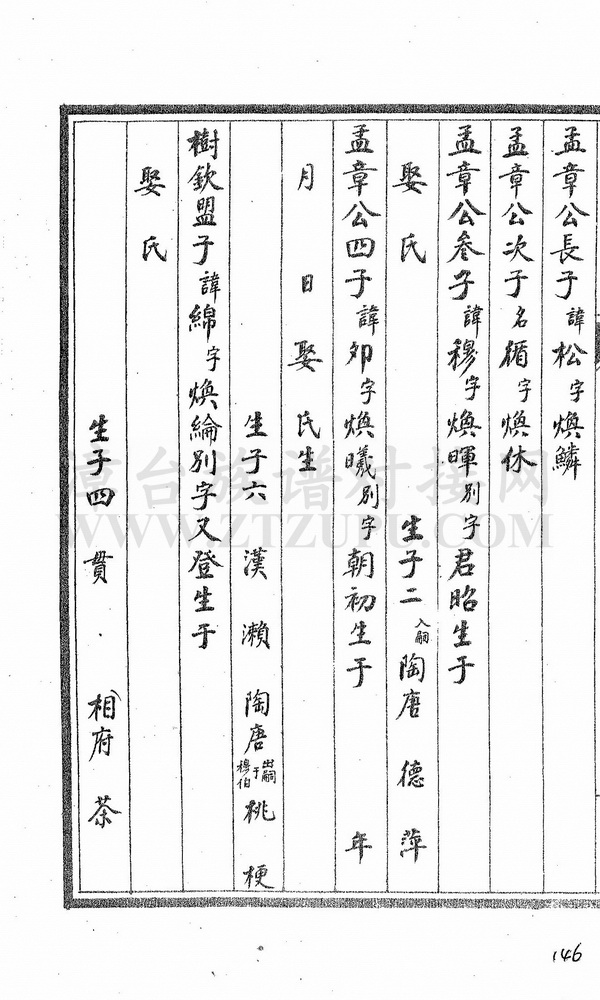 孟章公長子諱松字煥鱗
孟章公次子名循字煥休
孟章公叁子諱穆字煥暉別字君昭生于
娶氏 生子二 入嗣陶唐 德 萍
孟章公四子諱夘字煥曦別字朝初生于 年
月 日 娶氏生
生子六 漢 瀨 陶唐出嗣于穆伯 桃 梗
樹欽盟子諱綿字煥綸別字又登生于
娶氏
生子四 貫 相府 茶
146
WWW.ZTZUPU.COM